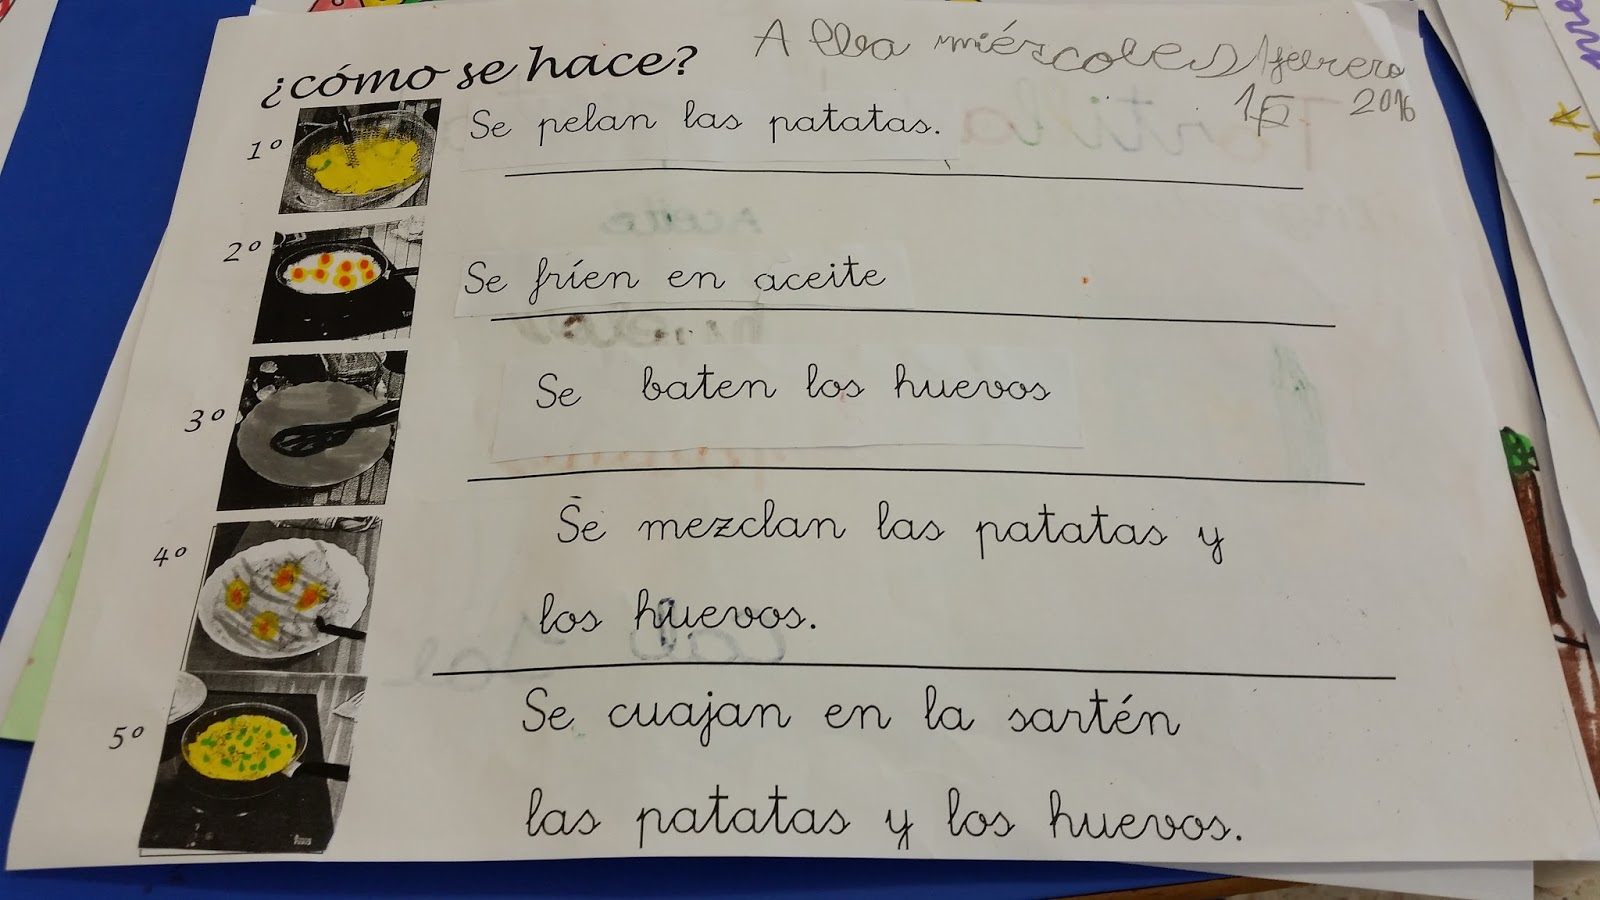 ¿cómo se hace?
Alba miércoles febrero
2016
1º
Se pelan las patatas.
2º
Se fríen en aceite
3º
Se baten los huevos
4º
Se mezclan las patatas y
los huevos.
5º
Se cuajan en la sartén
las patatas y los huevos.